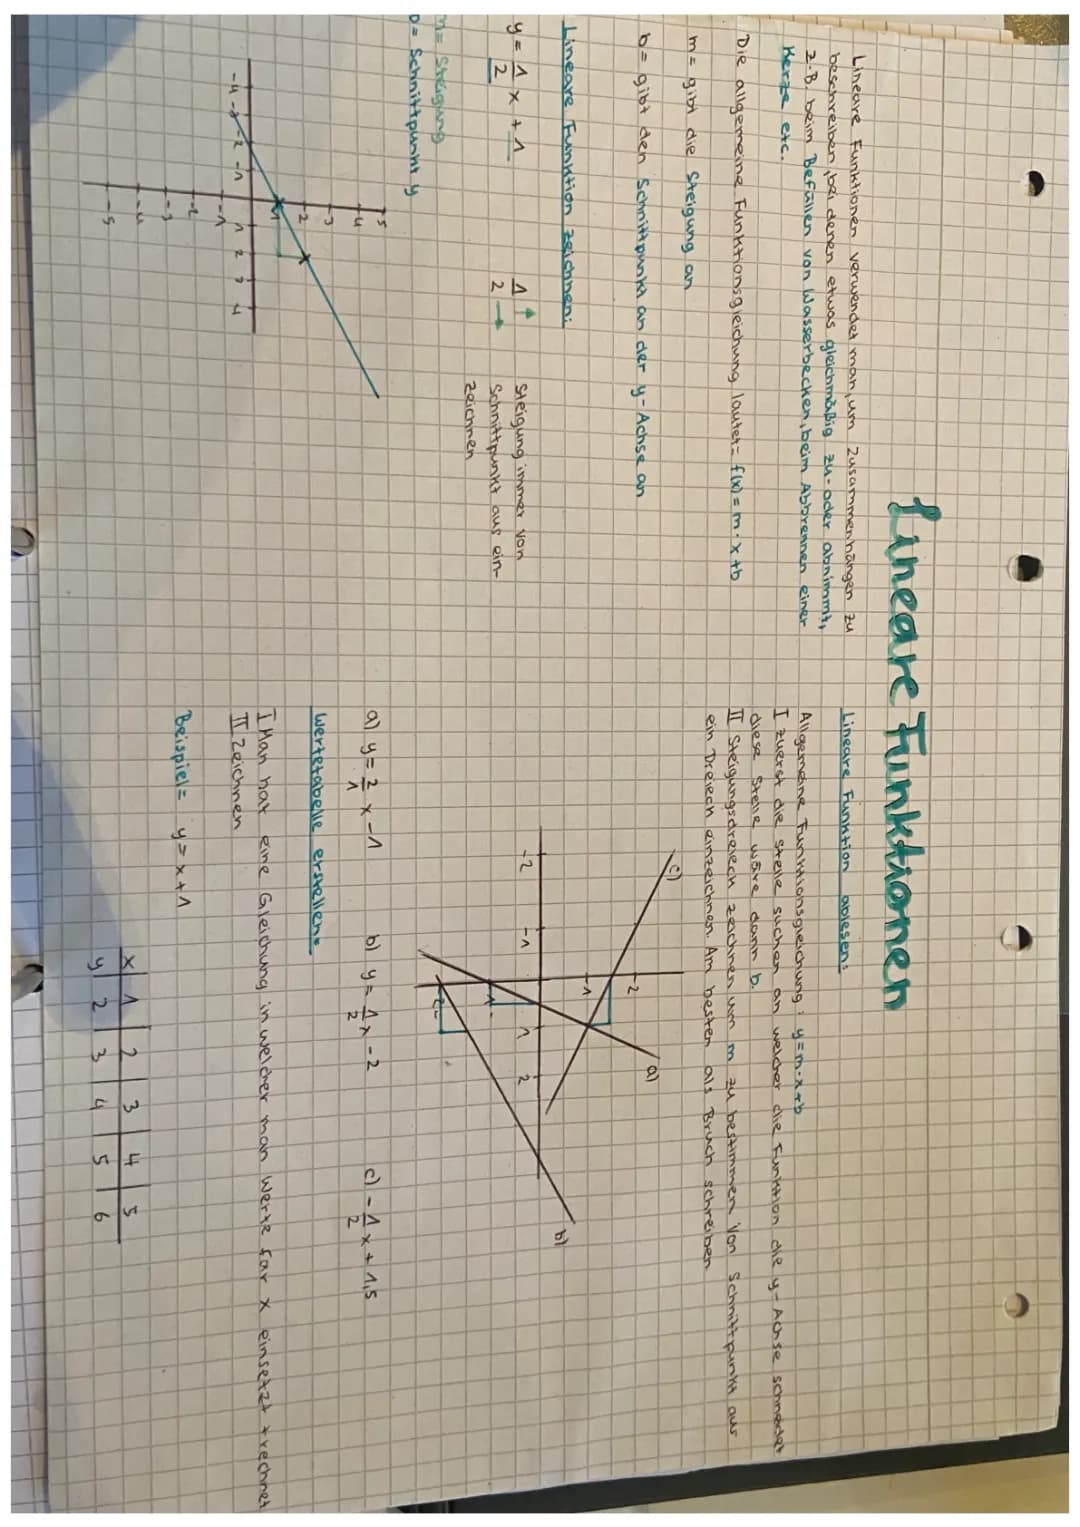 Lineare Funktionen
Lineare Funktionen verwendet man, um Zusammenhängen zu
beschreiben, bei denen etwas gleichmäßig zu- oder abnimmt,
z.B. beim Befüllen von Wasserbecken, beim Abbrennen einer
Kerze etc.
Die allgemeine Funktionsgleichung lautet= f(x) = m·x+b
m= gibt die Steigung an
b= gibt den Schnittpunkt an der y-Achse an
Lineare Funktion zeichnen:
y = 1/2 x + 1
1 ↑
2 →
Steigung immer von
Schnittpunkt aus ein-
zeichnen
m= Steigung
b= Schnittpunkt y
5
4
3
2
1
-4 -3 -2 -1 1 2 3 4
-1
-2
-3
-4
-5
Lineare Funktion ablesen:
Allgemeine Funktionsgleichung: y=m·x+b
I Zuerst die Stelle suchen an welcher die Funktion die y-Achse schneidet
diese Stelle wäre dann b.
II Steigungsdreieck zeichnen um m zu bestimmen. Von Schnittpunkt aus
ein Dreieck einzeichnen. Am besten als Bruch schreiben
c)
a)
b)
2
1
-2 -1 1 2
-1
-2
a) y = 2/1 x -1 b) y = 1/2 x -2 c) -1/2 x + 1,5
Wertetabelle erstellen=
I Man hat eine Gleichung in welcher man Werte für x einsetzt + rechnet
II Zeichnen
Beispiel= y = x+1
x 1 2 3 4 5
y 2 3 4 5 6